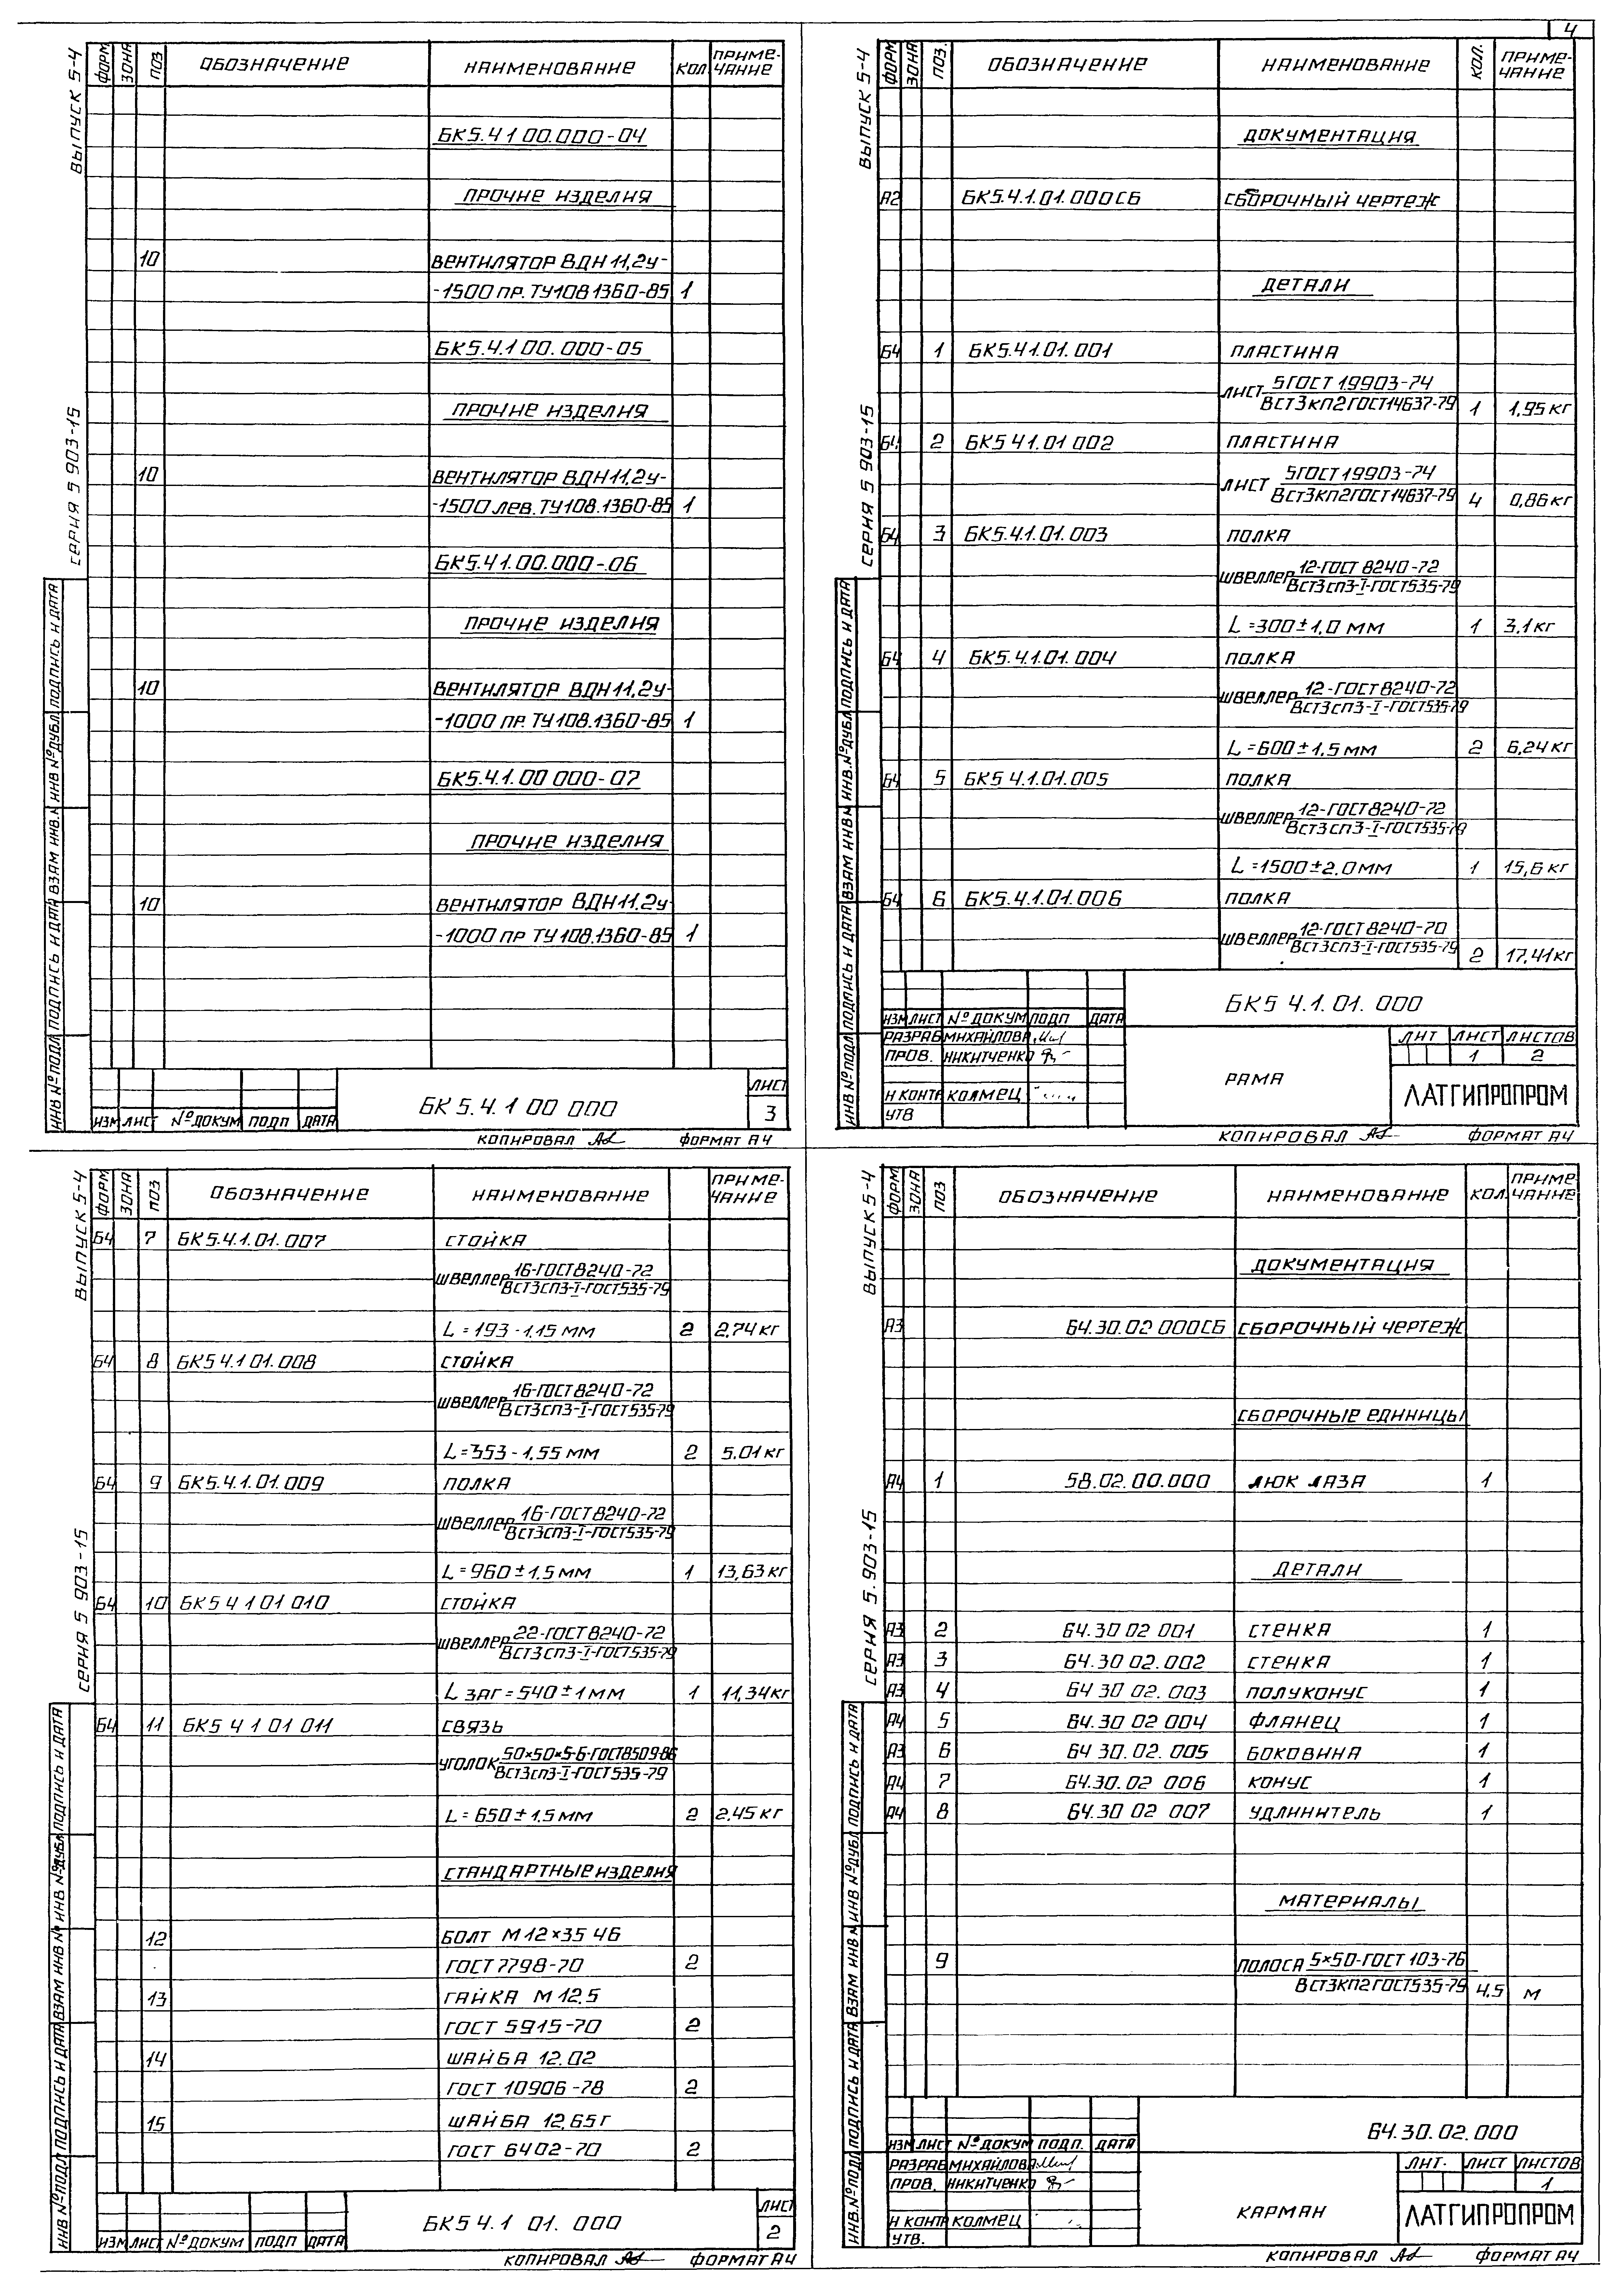 4
ВЫПУСК 5-4
СЕРИЯ 5 903-15
ФОРМ ЗОНА ПОЗ ОБОЗНАЧЕНИЕ НАИМЕНОВАНИЕ КОЛ. ПРИМЕЧАНИЕ
БК5.4 1 00.000-04
ПРОЧИЕ ИЗДЕЛИЯ
10 ВЕНТИЛЯТОР ВДН 11,2у-
-1500 ПР. ТУ108 1360-85 1
БК5.4.1 00.000-05
ПРОЧИЕ ИЗДЕЛИЯ
10 ВЕНТИЛЯТОР ВДН 11,2у-
-1500 ЛЕВ. ТУ108.1360-85 1
БК5.4 1.00.000-06
ПРОЧИЕ ИЗДЕЛИЯ
10 ВЕНТИЛЯТОР ВДН 11,2у-
-1000 ПР. ТУ108.1360-85 1
БК5.4.1.00 000-07
ПРОЧИЕ ИЗДЕЛИЯ
10 ВЕНТИЛЯТОР ВДН 11.2у-
-1000 ПР ТУ108.1360-85 1
ИНВ № ПОДЛ ПОДПИСЬ И ДАТА ВЗАМ ИНВ.№ ИНВ № ДУБЛ ПОДПИСЬ И ДАТА
ИЗМ ЛИСТ № ДОКУМ ПОДП ДАТА
БК 5.4.1 00 000
ЛИСТ
3
КОПИРОВАЛ ФОРМАТ А4
ВЫПУСК 5-4
СЕРИЯ 5 903-15
ФОРМ ЗОНА ПОЗ. ОБОЗНАЧЕНИЕ НАИМЕНОВАНИЕ КОЛ. ПРИМЕ-
ЧАНИЕ
ДОКУМЕНТАЦИЯ
А2 БК5.4.1.01.000СБ СБОРОЧНЫЙ ЧЕРТЕЖ
ДЕТАЛИ
Б4 1 БК5.4.1.01.001 ПЛАСТИНА
ЛИСТ 5ГОСТ 19903-74
ВСт3кп2ГОСТ14637-79 1 1,95 кг
Б4 2 БК5 4.1.01 002 ПЛАСТИНА
ЛИСТ 5ГОСТ 19903-74
ВСт3кп2ГОСТ14637-79 4 0,86 кг
Б4 3 БК5.4.1.01.003 ПОЛКА
ШВЕЛЛЕР 12-ГОСТ 8240-72
ВСт3сп3-I-ГОСТ535-79
L=300±1,0 ММ 1 3,1 кг
Б4 4 БК5.4.1.01.004 ПОЛКА
ШВЕЛЛЕР 12-ГОСТ8240-72
ВСт3сп3-I-ГОСТ535-79
L=600±1,5 ММ 2 6,24 кг
Б4 5 БК5 4.1.01.005 ПОЛКА
ШВЕЛЛЕР 12-ГОСТ8240-72
ВСт3сп3-I-ГОСТ535-79
L=1500±2.0 ММ 1 15,6 кг
Б4 6 БК5.4.1.01.006 ПОЛКА
ШВЕЛЛЕР 12-ГОСТ 8240-70
ВСт3сп3-I-ГОСТ535-79 2 17,41 кг
ИНВ № ПОДЛ ПОДПИСЬ И ДАТА ВЗАМ ИНВ № ИНВ.№ ДУБЛ ПОДПИСЬ И ДАТА
ИЗМ ЛИСТ № ДОКУМ ПОДП ДАТА
РАЗРАБ МИХАЙЛОВА
ПРОВ. НИКИТЧЕНКО
Н КОНТР КОЛМЕЦ
УТВ
БК5 4.1.01. 000
РАМА
ЛИТ ЛИСТ ЛИСТОВ
1 2
ЛАТГИПРОПРОМ
КОПИРОВАЛ ФОРМАТ А4
ВЫПУСК 5-4
СЕРИЯ 5 903-15
ФОРМ ЗОНА ПОЗ ОБОЗНАЧЕНИЕ НАИМЕНОВАНИЕ ПРИМЕ-
ЧАНИЕ
Б4 7 БК5.4.1.01.007 СТОЙКА
ШВЕЛЛЕР 16-ГОСТ8240-72
ВСт3сп3-I-ГОСТ535-79
L=193-1,15 ММ 2 2,74 кг
Б4 8 БК5 4.1 01.008 СТОЙКА
ШВЕЛЛЕР 16-ГОСТ 8240-72
ВСт3сп3-I-ГОСТ535-79
L=353-1,55 ММ 2 5.01 кг
Б4 9 БК5.4.1.01.009 ПОЛКА
ШВЕЛЛЕР 16-ГОСТ8240-72
ВСт3сп3-I-ГОСТ535-79
L=960±1,5 ММ 1 13,63 кг
Б4 10 БК5 4 1 01 010 СТОЙКА
ШВЕЛЛЕР 22-ГОСТ 8240-72
ВСт3сп3-I-ГОСТ535-79
L ЗАГ=540±1 ММ 1 11,34 кг
Б4 11 БК5 4 1 01 011 СВЯЗЬ
УГОЛОК 50×50×5-Б-ГОСТ8509-86
ВСт3сп3-I-ГОСТ 535-79
L=650±1.5 ММ 2 2,45 кг
СТАНДАРТНЫЕ ИЗДЕЛИЯ
12 БОЛТ М12×35 46
ГОСТ 7798-70 2
13 ГАЙКА М 12,5
ГОСТ 5915-70 2
14 ШАЙБА 12.02
ГОСТ 10906-78 2
15 ШАЙБА 12,65 Г
ГОСТ 6402-70 2
ИНВ № ПОДЛ ПОДПИСЬ И ДАТА ВЗАМ ИНВ № ИНВ № ДУБЛ ПОДПИСЬ И ДАТА
ИЗМ ЛИСТ № ДОКУМ ПОДП ДАТА
БК5 4.1 01. 000
ЛИСТ
2
КОПИРОВАЛ ФОРМАТ А4
ВЫПУСК 5-4
СЕРИЯ 5.903-15
ФОРМ ЗОНА ПОЗ ОБОЗНАЧЕНИЕ НАИМЕНОВАНИЕ КОЛ. ПРИМЕ-
ЧАНИЕ
ДОКУМЕНТАЦИЯ
А3 64.30.02 000СБ СБОРОЧНЫЙ ЧЕРТЕЖ
СБОРОЧНЫЕ ЕДИНИЦЫ
А4 1 58.02.00.000 ЛЮК ЛАЗА 1
ДЕТАЛИ
А3 2 64.30 02 001 СТЕНКА 1
А3 3 64.30 02.002 СТЕНКА 1
А3 4 64 30 02. 003 ПОЛУКОНУС 1
А4 5 64.30 02 004 ФЛАНЕЦ 1
А3 6 64 30.02. 005 БОКОВИНА 1
А4 7 64.30.02 006 КОНУС 1
А4 8 64.30 02 007 УДЛИНИТЕЛЬ 1
МАТЕРИАЛЫ
9 ПОЛОСА 5×50-ГОСТ 103-76
ВСт3кп2 ГОСТ535-79 4,5 М
ИНВ.№ ПОДЛ ПОДПИСЬ И ДАТА ВЗАМ ИНВ № ИНВ № ДУБЛ ПОДПИСЬ И ДАТА
ИЗМ ЛИСТ № ДОКУМ ПОДП. ДАТА
РАЗРАБ МИХАЙЛОВА
ПРОВ. НИКИТЧЕНКО
Н КОНТР КОЛМЕЦ
УТВ.
64.30.02.000
КАРМАН
ЛИТ. ЛИСТ ЛИСТОВ
1
ЛАТГИПРОПРОМ
КОПИРОВАЛ ФОРМАТ А4